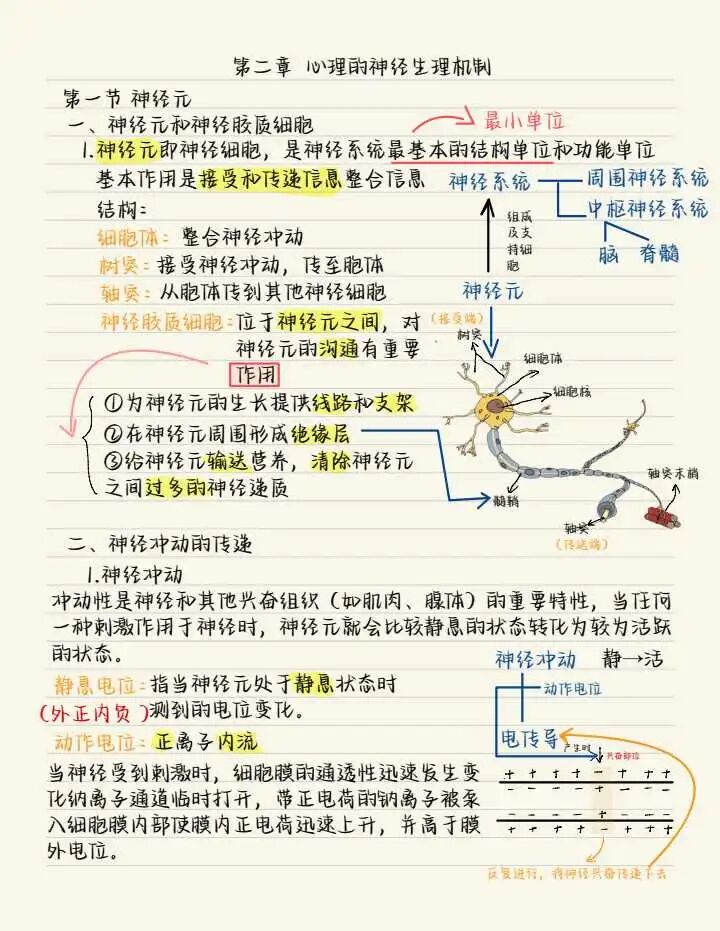 第二章 心理的神经生理机制
第一节 神经元
一、神经元和神经胶质细胞
最小单位
1.神经元即神经细胞，是神经系统最基本的结构单位和功能单位
基本作用是接受和传递信息整合信息
神经系统
周围神经系统
中枢神经系统
脑 脊髓
组成
及支
持细
胞
神经元
结构：
细胞体：整合神经冲动
树突：接受神经冲动，传至胞体
轴突：从胞体传到其他神经细胞
神经胶质细胞：位于神经元之间，对
神经元的沟通有重要
作用
（接受端）
树突
细胞体
细胞核
髓鞘
轴突末梢
轴突
（传送端）
①为神经元的生长提供线路和支架
②在神经元周围形成绝缘层
③给神经元输送营养，清除神经元
之间过多的神经递质
二、神经冲动的传递
1.神经冲动
冲动性是神经和其他兴奋组织（如肌肉、腺体）的重要特性，当任何
一种刺激作用于神经时，神经元就会比较静息的状态转化为较为活跃
的状态。
静息电位：指当神经元处于静息状态时
（外正内负）测到的电位变化。
动作电位：正离子内流
当神经受到刺激时，细胞膜的通透性迅速发生变
化纳离子通道临时打开，带正电荷的钠离子被泵
入细胞膜内部使膜内正电荷迅速上升，并高于膜
外电位。
神经冲动 静→活
动作电位
电传导
产生时
兴奋部位
+ + + + - + + + +
- - - - + - - - -
- - - - + - - - -
+ + + + - + + + +
反复进行，将神经兴奋传递下去